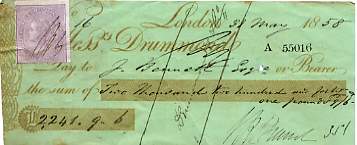 London 1858
Mess.rs Drummond
A 55016
Pay to J. Bennett Esqre or Bearer
the sum of Two Thousand two hundred and forty
one pounds 9/6
£ 2241. 9. 6